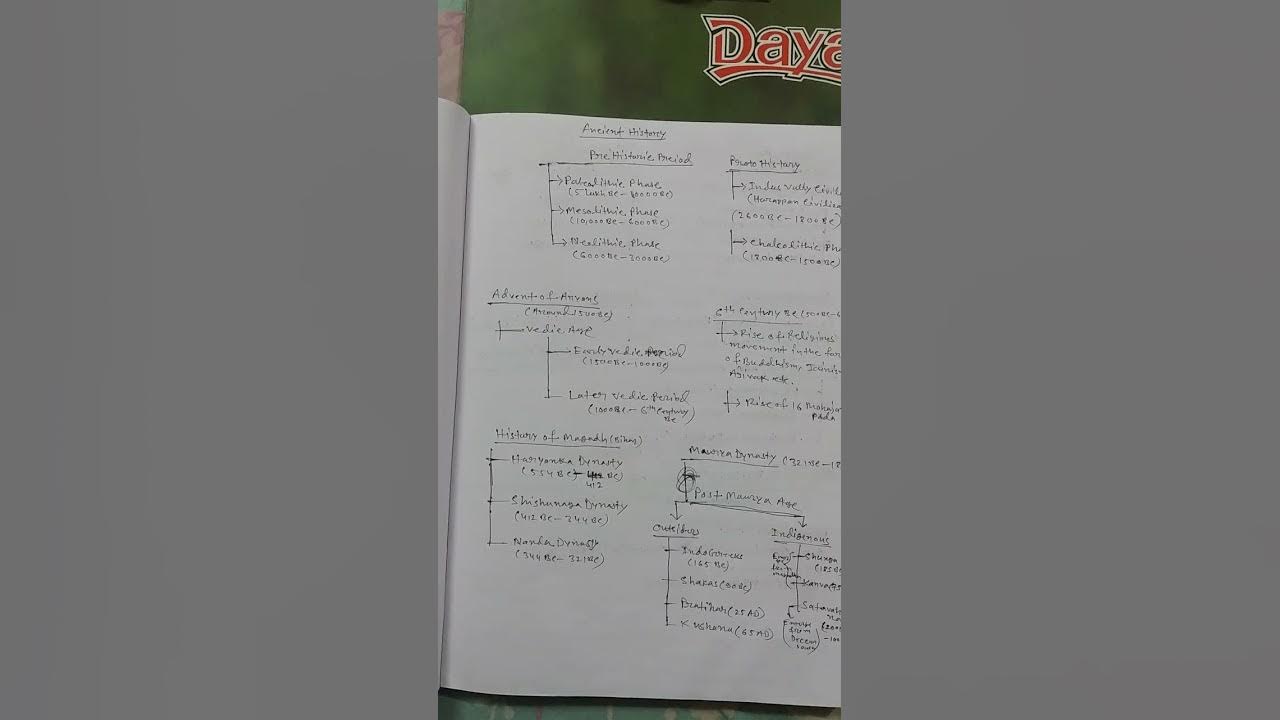 Daya
Ancient History
Pre Historic Preiod
Paleolithic Phase
(5 Lakh BC - 10000 BC)
Mesolithic Phase
(10,000 BC - 6000 BC)
Neolithic Phase
(6000 BC - 3000 BC)
Proto History
Indus Vally Civili
(Harappan Civiliza
(2600 BC - 1800 BC)
Chalcolithic Pha
(1800 BC - 1500 BC)
Advent of Aryans
(Around 1500 BC)
Vedic Age
Early Vedic Period
(1500 BC - 1000 BC)
Later Vedic Period
(1000 BC - 6th Century
BC)
6th Century BC (500 BC - 6
Rise of Religious
movement in the for
of Buddhism, Jainis
Ajivak etc.
Rise of 16 Mahaja
pada
History of Magadh (Bihar)
Haryanka Dynasty
(554 BC - BC)
412
Shishunaga Dynasty
(412 BC - 344 BC)
Nanda Dynasty
(344 BC - 321 BC)
Maurya Dynasty (321 BC - 18
Post Maurya Age
Outsiders
Indo Greeks
(165 BC)
Shakas (90 BC)
(25 AD)
Kushana (65 AD)
Indigenous
Shunga
(185 B
Kanva (75
Satavah
na
(200
-100
from
Deccan
South